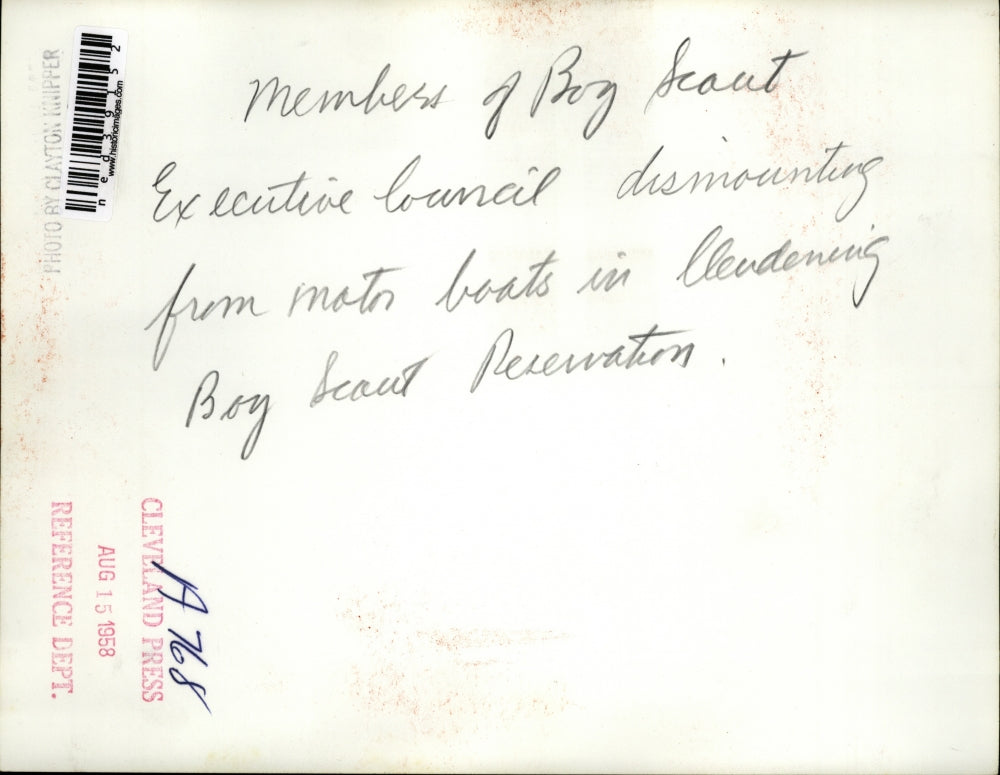 Members of Boy Scout
Executive Council dismounting
from motor boats in Clendening
Boy Scout Reservation.
PHOTO BY CLAYTON KNIPPER
ned39152
www.historicimages.com
CLEVELAND PRESS
AUG 15 1958
REFERENCE DEPT.
A 768